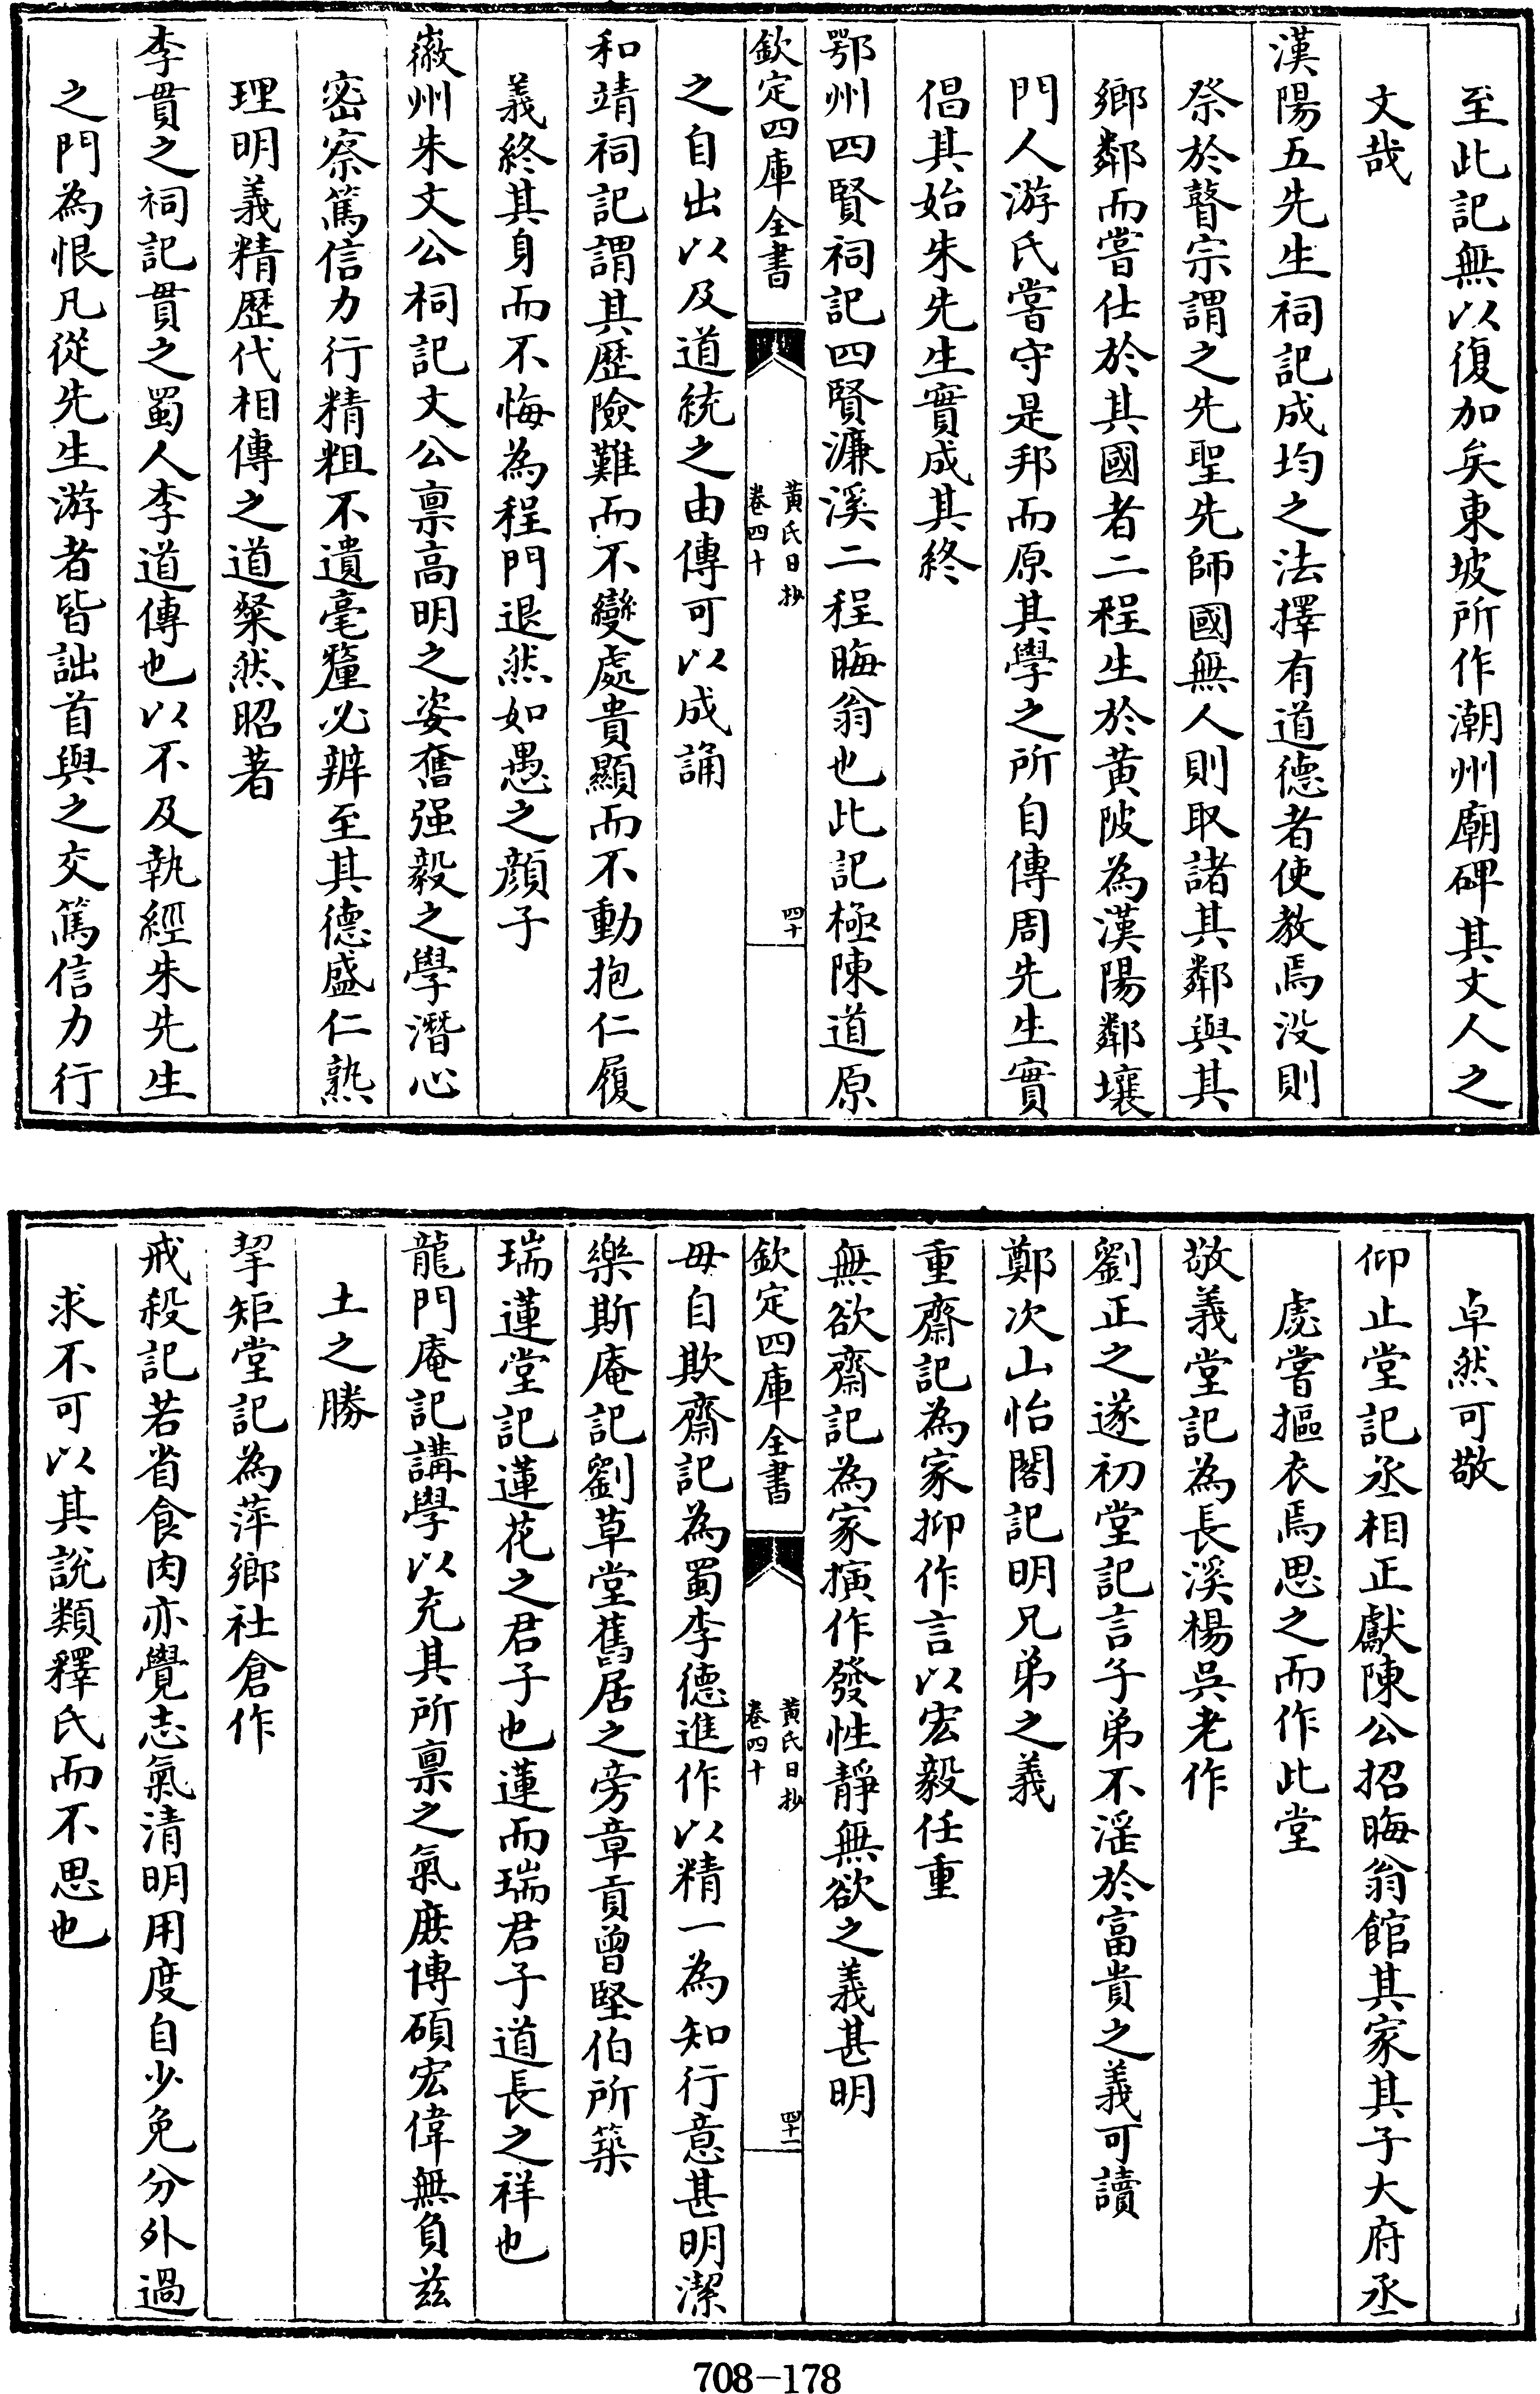 至此記無以復加矣東坡所作潮州廟碑其文人之
文哉
漢陽五先生祠記成均之法擇有道德者使教焉沒則
祭於瞽宗謂之先聖先師國無人則取諸其鄰與其
鄉鄰而嘗仕於其國者二程生於黄陂為漢陽鄰壤
門人游氏嘗守是邦而原其學之所自傳周先生實
倡其始朱先生實成其終
鄂州四賢祠記四賢濂溪二程晦翁也此記極陳道原
欽定四庫全書
黄氏日抄
卷四十
四十
之自出以及道統之由傳可以成誦
和靖祠記謂其歴險難而不變處貴顯而不動抱仁履
義終其身而不悔為程門退然如愚之顔子
徽州朱文公祠記文公禀高明之姿奮强毅之學潛心
密察篤信力行精粗不遺毫釐必辨至其德盛仁熟
理明義精歴代相傳之道粲然昭著
李貫之祠記貫之蜀人李道傳也以不及執經朱先生
之門為恨凡從先生游者皆詘首與之交篤信力行
卓然可敬
仰止堂記丞相正獻陳公招晦翁館其家其子大府丞
宓嘗摳衣焉思之而作此堂
敬義堂記為長溪楊吳老作
劉正之遂初堂記言子弟不淫於富貴之義可讀
鄭次山怡閣記明兄弟之義
重齋記為家抑作言以宏毅任重
無欲齋記為家演作發性靜無欲之義甚明
欽定四庫全書
黄氏日抄
卷四十
四十一
毋自欺齋記為蜀李德進作以精一為知行意甚明潔
樂斯庵記劉草堂舊居之旁章貢曾堅伯所築
瑞蓮堂記蓮花之君子也蓮而瑞君子道長之祥也
龍門庵記講學以充其所禀之氣庶博碩宏偉無負兹
土之勝
挈矩堂記為萍鄉社倉作
戒殺記若省食肉亦覺志氣清明用度自少免分外過
求不可以其說類釋氏而不思也
708-178